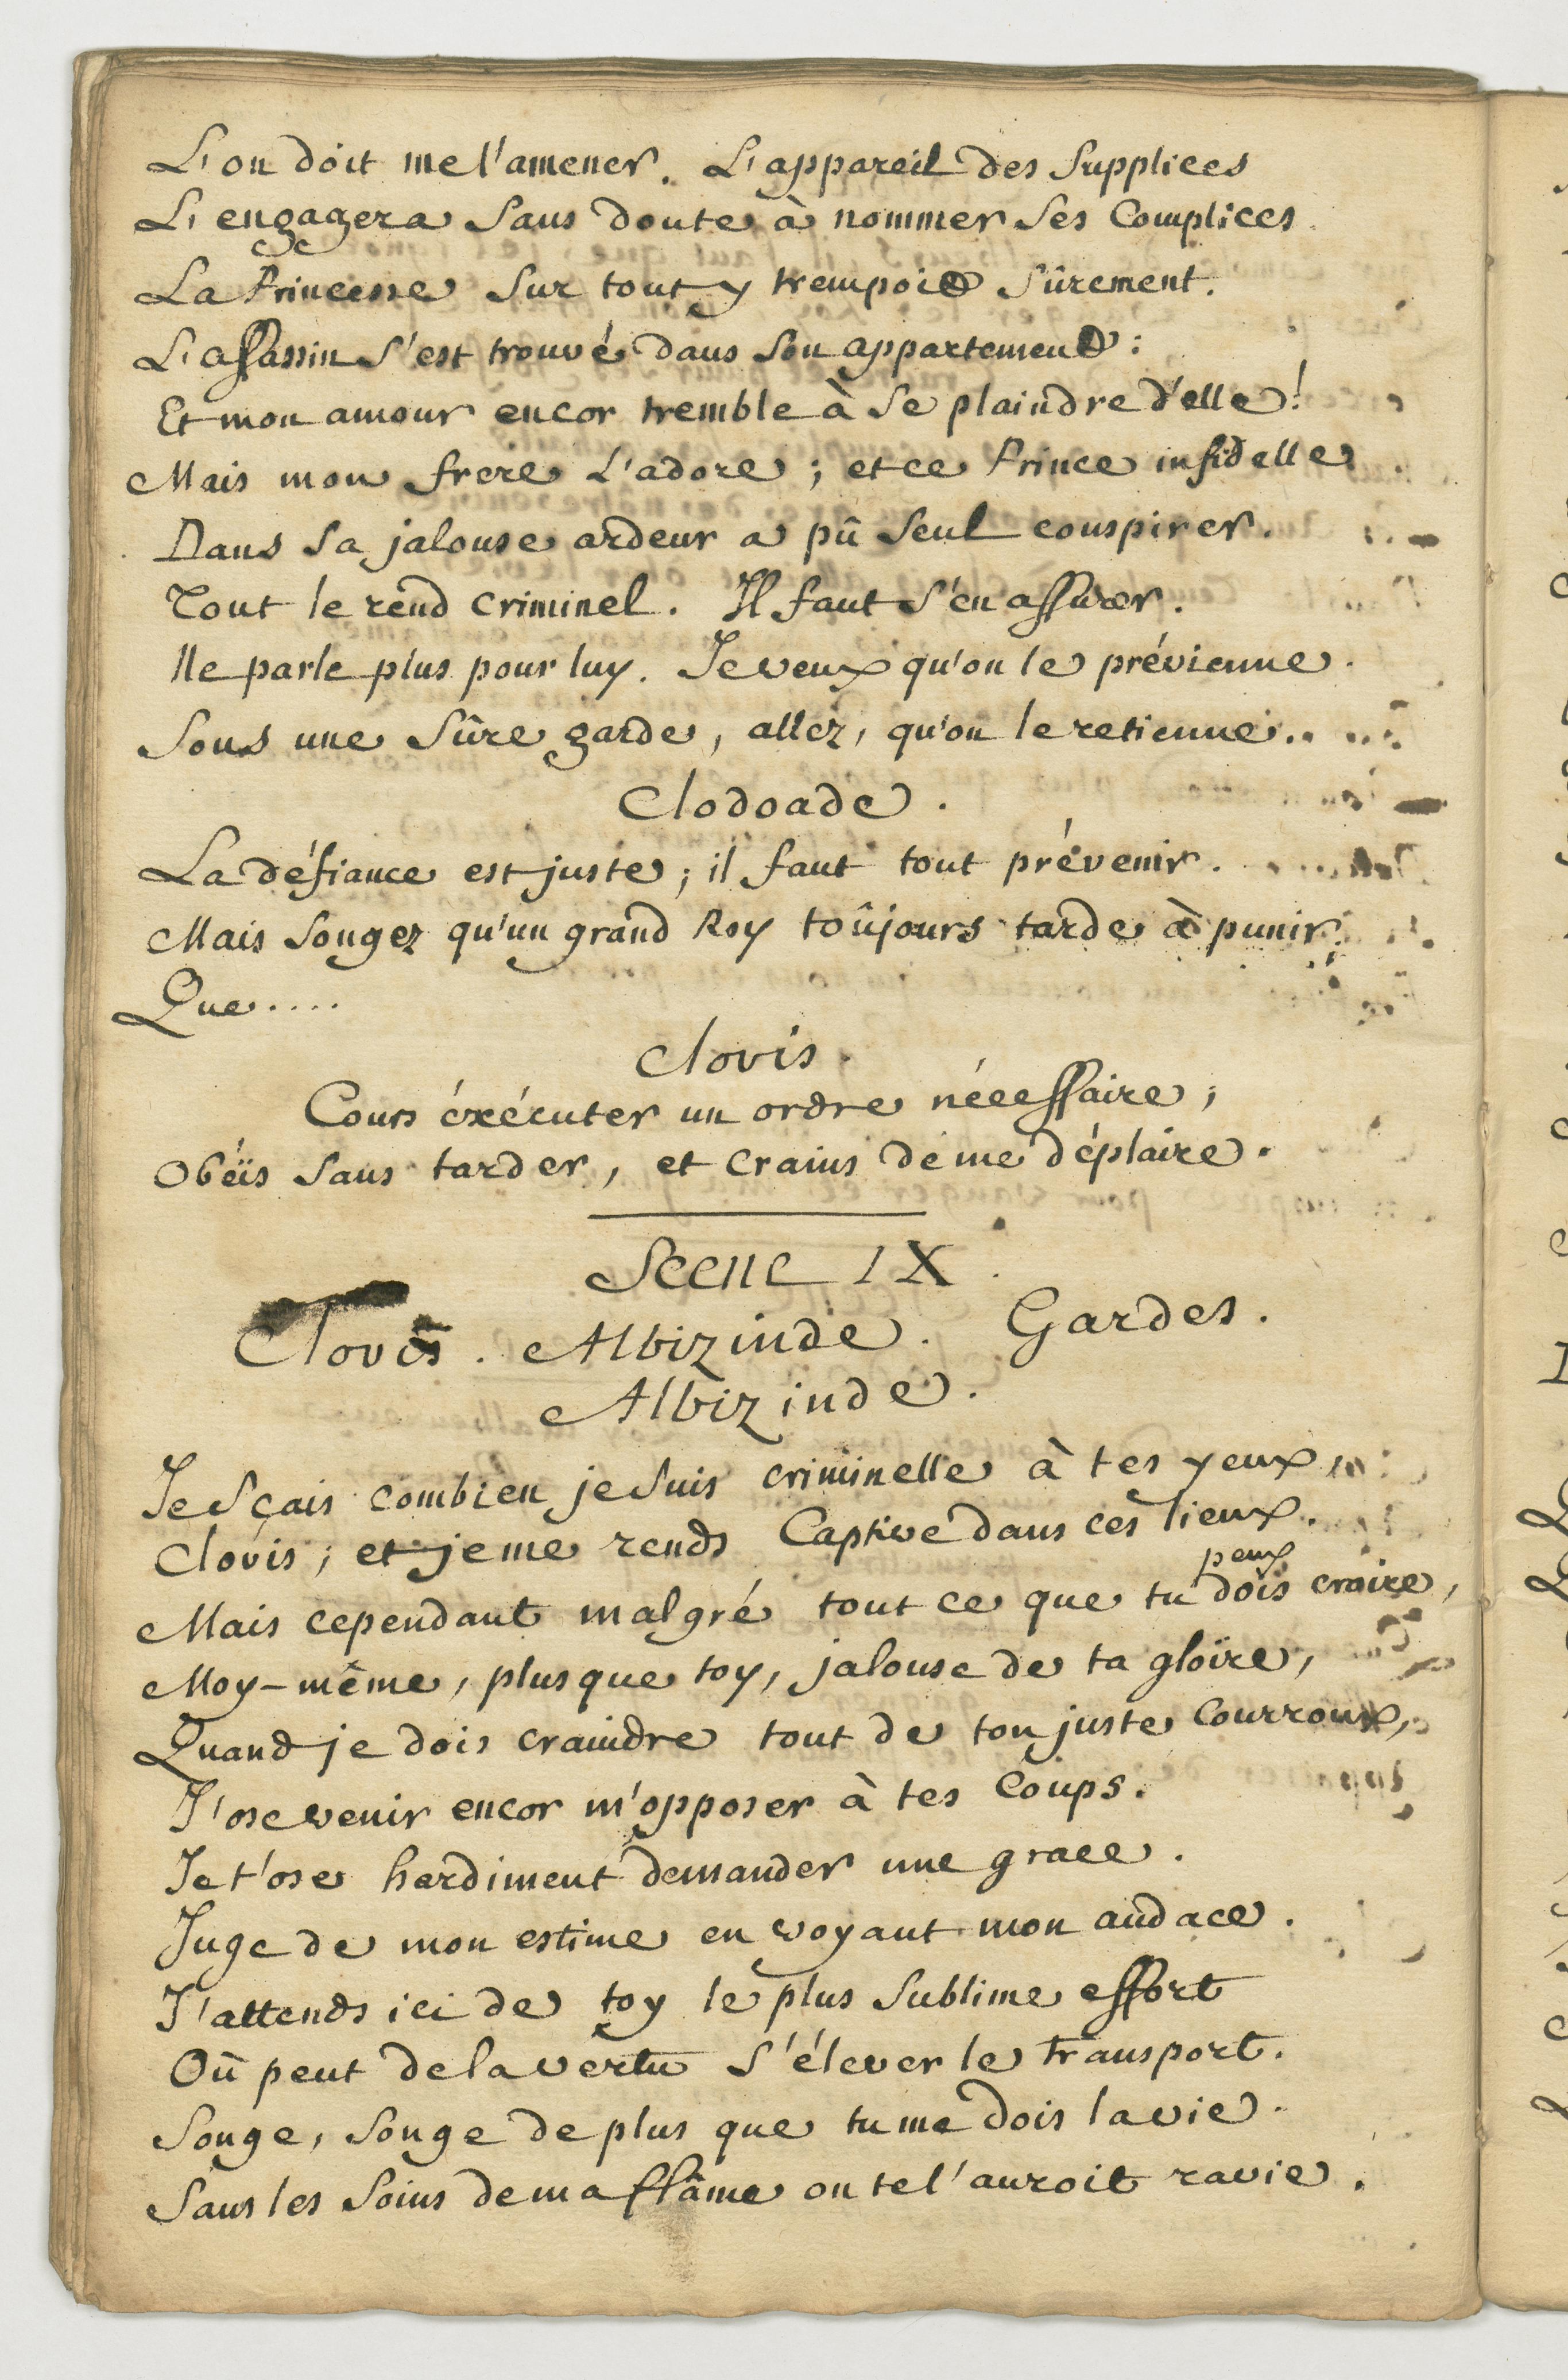 L'on doit me l'amener. L'appareil des Supplices
L'engagera Sans doute à nommer Ses Complices.
La Princesse Sur tout y trempoit Sûrement.
L'assassin S'est trouvé dans Son appartement:
Et mon amour encor tremble à Se plaindre d'elle!
Mais mon frere L'adore; et ce Prince infidelle
Dans Sa jalouse ardeur a pû Seul conspirer.
Tout le rend criminel. Il faut S'en assurer.
Ne parle plus pour luy. Je veux qu'on le prévienne.
Sous une Sûre garde, allez, qu'on le retienne.
Clodoade.
La défiance est juste; il faut tout prévenir.
Mais Songez qu'un grand Roy toûjours tarde à punir;
Que....
Clovis.
Cours éxécuter un ordre nécessaire;
Obéïs Sans tarder, et Crains de me déplaire.
Scene IX.
Clovis. Albizinde. Gardes.
Albizinde.
Je Sçais combien je Suis criminelle à tes yeux
Clovis; et je me rends Captive dans ces lieux.
peux
Mais cependant malgré tout ce que tu dois croire,
Moy-même, plus que toy, jalouse de ta gloire,
Quand je dois craindre tout de ton juste Courroux,
J'ose venir encor m'opposer à tes Coups.
Je t'ose hardiment demander une grace.
Juge de mon estime en voyant mon audace.
J'attends ici de toy le plus Sublime effort
Où peut de la vertu S'élever le transport.
Songe, Songe de plus que tu me dois la vie.
Sans les Soins de ma flâme on te l'auroit ravie.